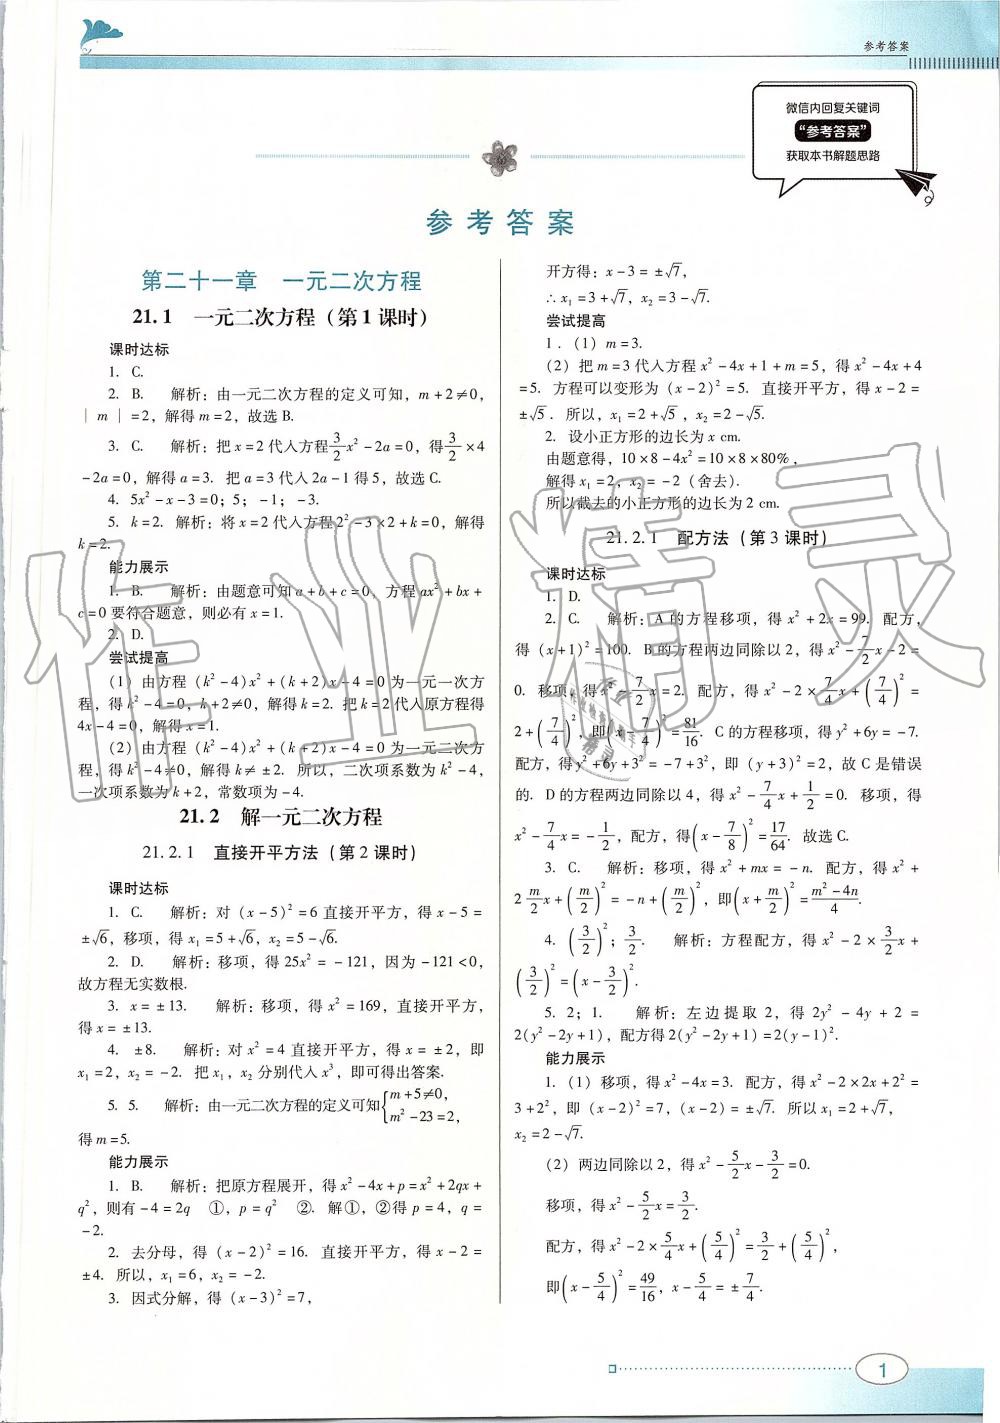 参考答案
微信内回复关键词
“参考答案”
获取本书解题思路
参考答案
第二十一章　一元二次方程
21.1　一元二次方程(第1课时)
课时达标
1. C.
2. B.　解析:由一元二次方程的定义可知, m+2≠0,
|m|=2,解得m=2,故选B.
3. C.　解析:把x=2代入方程3/2x²-2a=0,得3/2×4
-2a=0,解得a=3. 把a=3代入2a-1得5,故选C.
4. 5x²-x-3=0; 5; -1; -3.
5. k=2. 解析:将x=2代入方程2²-3×2+k=0,解得
k=2.
能力展示
1. B.　解析:由题意可知a+b+c=0,方程ax²+bx+
c=0要符合题意,则必有x=1.
2. D.
尝试提高
(1)由方程(k²-4)x²+(k+2)x-4=0为一元一次方
程,得k²-4=0, k+2≠0,解得k=2. 把k=2代入原方程得
4x-4=0,解得x=1.
(2)由方程(k²-4)x²+(k+2)x-4=0为一元二次方
程,得k²-4≠0,解得k≠±2. 所以,二次项系数为k²-4,
一次项系数为k+2,常数项为-4.
21.2　解一元二次方程
21.2.1　直接开平方法(第2课时)
课时达标
1. C.　解析:对(x-5)²=6直接开平方,得x-5=
±√6,移项,得x₁=5+√6, x₂=5-√6.
2. D.　解析:移项,得25x²=-121,因为-121<0,
故方程无实数根.
3. x=±13.　解析:移项,得x²=169,直接开平方,
得x=±13.
4. ±8.　解析:对x²=4直接开平方,得x=±2,即
x₁=2, x₂=-2. 把x₁, x₂分别代入x³,即可得出答案.
5. 5.　解析:由一元二次方程的定义可知{m+5≠0, m²-23=2,
得m=5.
能力展示
1. B.　解析:把原方程展开,得x²-4x+p=x²+2qx+
q²,则有-4=2q　①, p=q²　②. 解①,②得p=4, q=
-2.
2. 去分母,得(x-2)²=16. 直接开平方,得x-2=
±4. 所以, x₁=6, x₂=-2.
3. 因式分解,得(x-3)²=7,
开方得: x-3=±√7,
∴x₁=3+√7, x₂=3-√7.
尝试提高
1.(1)m=3.
(2)把m=3代入方程x²-4x+1+m=5,得x²-4x+4
=5. 方程可以变形为(x-2)²=5. 直接开平方,得x-2=
±√5. 所以, x₁=2+√5, x₂=2-√5.
2. 设小正方形的边长为x cm.
由题意得, 10×8-4x²=10×8×80%,
解得x₁=2, x₂=-2(舍去).
所以截去的小正方形的边长为2 cm.
21.2.1　配方法(第3课时)
课时达标
1. D.
2. C.　解析: A的方程移项,得x²+2x=99. 配方,
得(x+1)²=100. B的方程两边同除以2,得x²-7/2x-2=
0. 移项,得x²-7/2x=2. 配方,得x²-2×7/4x+(7/4)²=
2+(7/4)²,即(x-7/4)²=81/16. C的方程移项,得y²+6y=-7.
配方,得y²+6y+3²=-7+3²,即(y+3)²=2,故C是错误
的. D的方程两边同除以4,得x²-7/4x+1/2=0. 移项,得
x²-7/4x=-1/2,配方,得(x-7/8)²=17/64. 故选C.
3. C.　解析:移项,得x²+mx=-n. 配方,得x²+
2 m/2x+(m/2)²=-n+(m/2)²,即(x+m/2)²=(m²-4n)/4.
4. (3/2)²; 3/2.　解析:方程配方,得x²-2×3/2x+
(3/2)²=(x-3/2)².
5. 2; 1.　解析:左边提取2,得2y²-4y+2=
2(y²-2y+1),配方得2(y²-2y+1)=2(y-1)².
能力展示
1.(1)移项,得x²-4x=3. 配方,得x²-2×2x+2²=
3+2²,即(x-2)²=7,(x-2)=±√7. 所以x₁=2+√7,
x₂=2-√7.
(2)两边同除以2,得x²-5/2x-3/2=0.
移项,得x²-5/2x=3/2.
配方,得x²-2×5/4x+(5/4)²=3/2+(5/4)²,
即(x-5/4)²=49/16, x-5/4=±7/4
1
作业精灵